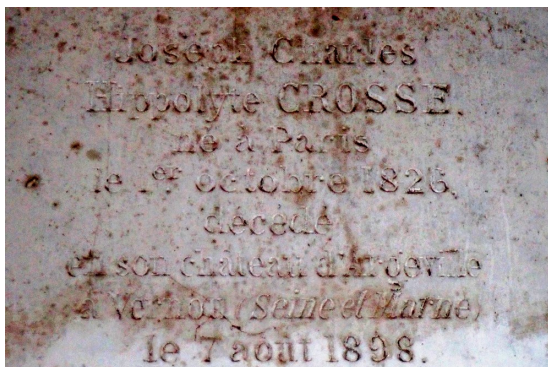 Joseph Charles
Hippolyte CROSSE
né à Paris
le 1er octobre 1826,
décédé
en son château d'Argeville
à Vernou (Seine et Marne)
le 7 août 1898.